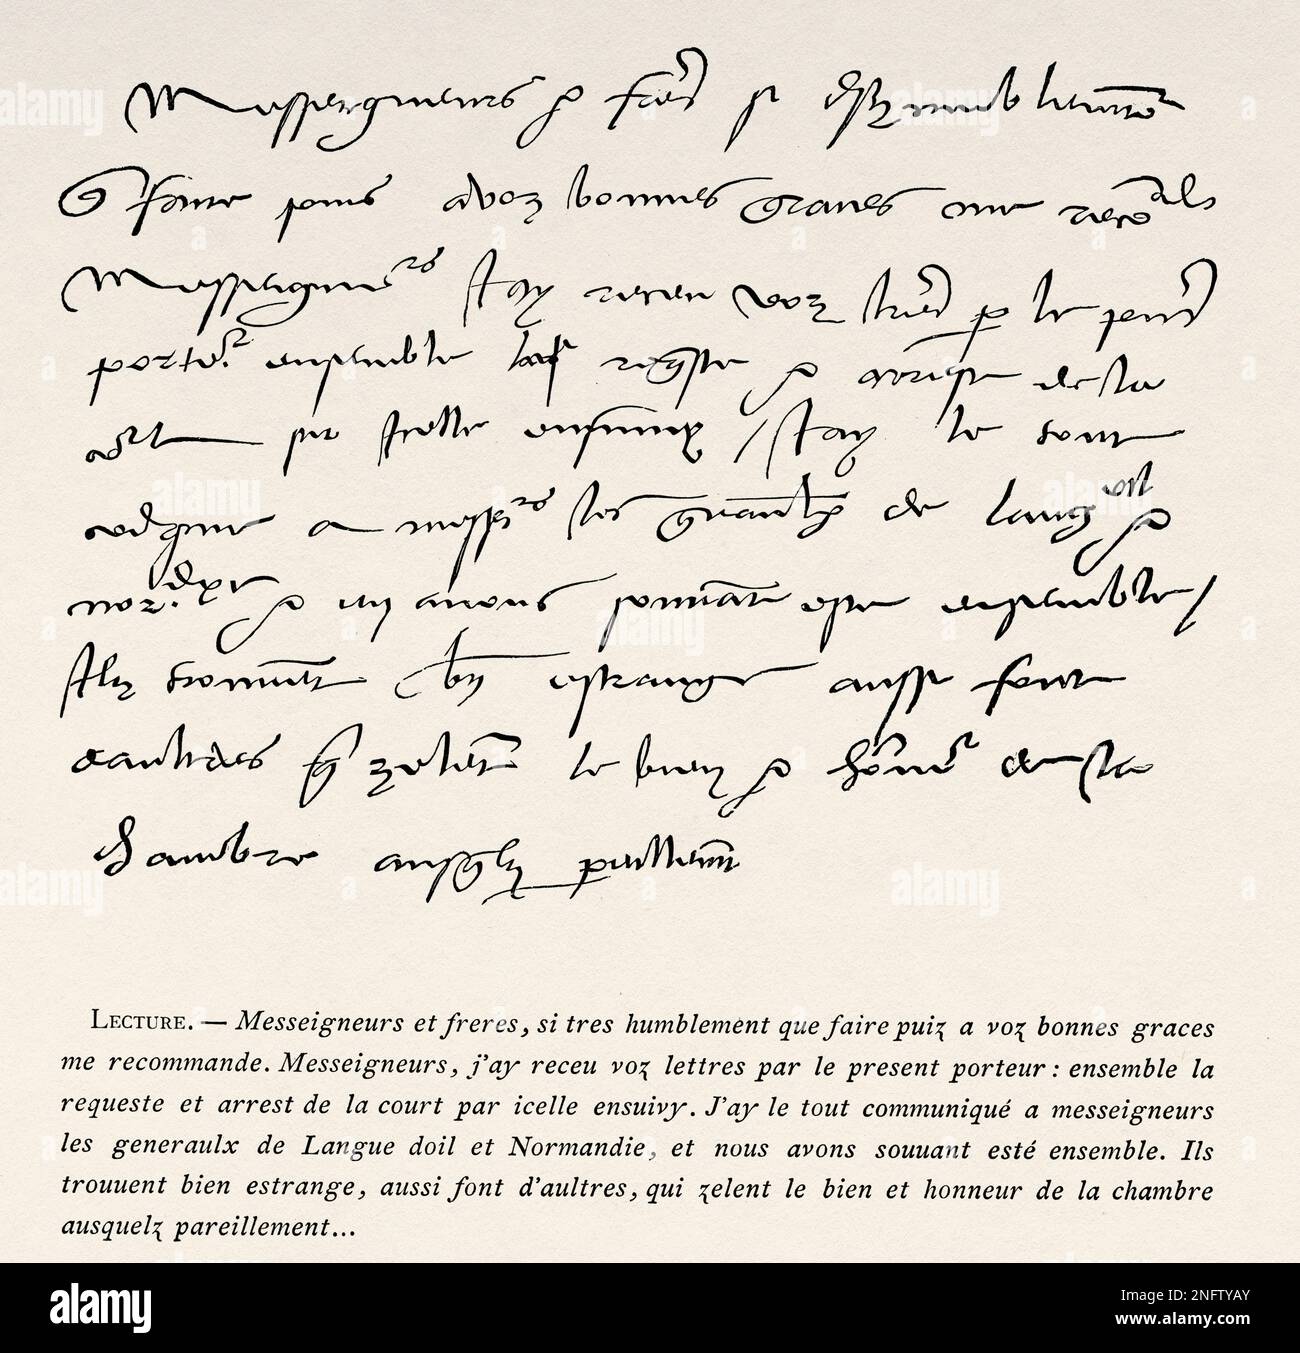 Messeigneurs et freres si tres humblement
que faire puis a voz bonnes graces me recomande
Messeigneurs Jay receu voz lettres par le present
porteur ensemble la requeste et arrest de la
court par icelle ensuivy / Jay le tout
a messrs les generaulx de langue doil et
normandie et avons souuant este ensemble /
Ilz trouuent bien estrange aussi font
daultres qui zelent le bien et honneur de la
chambre ausquelz pareillement
LECTURE. — Messeigneurs et freres, si tres humblement que faire puiz a voz bonnes graces
me recommande. Messeigneurs, j'ay receu voz lettres par le present porteur : ensemble la
requeste et arrest de la court par icelle ensuivy. J'ay le tout communiqué a messeigneurs
les generaulx de Langue doil et Normandie, et nous avons souuant esté ensemble. Ils
trouuent bien estrange, aussi font d'aultres, qui zelent le bien et honneur de la chambre
ausquelz pareillement...
alamy
Image ID: 2NFTYAY
www.alamy.com